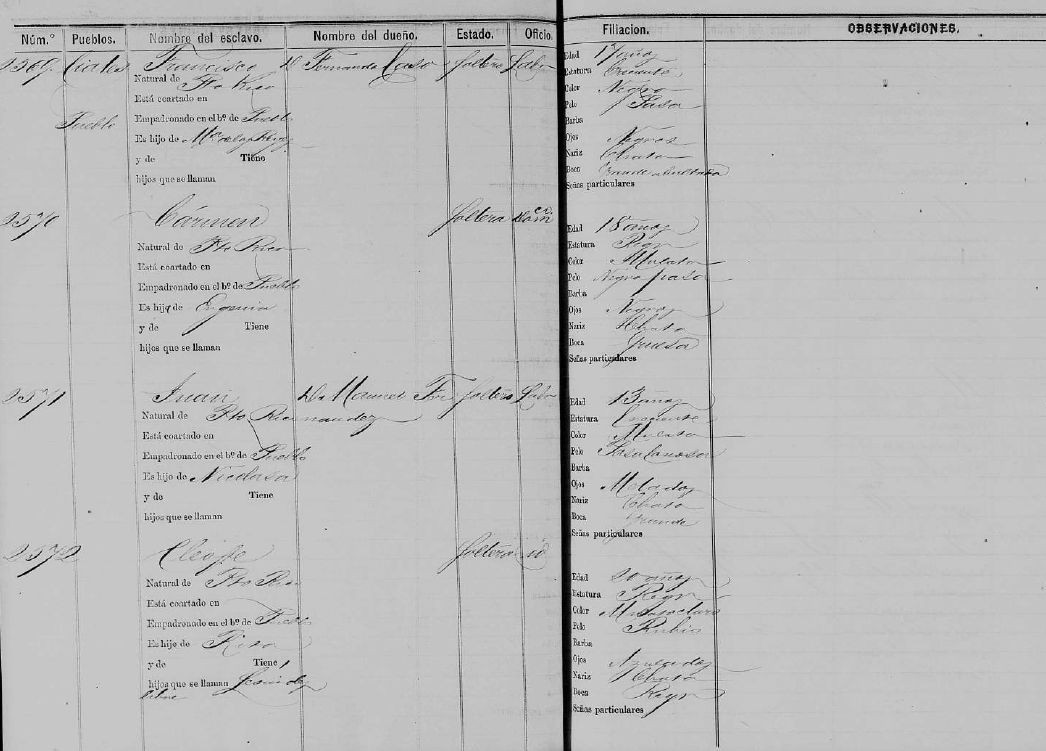 Núm.° Pueblos. Nombre del esclavo. Nombre del dueño. Estado. Oficio. Filiacion. OBSERVACIONES.
2569 Ciales Francisco Dn Fernando Caso soltero Labr
Natural de Pto Rico
Está coartado en
Pueblo
Empadronado en el bº de Pueblo
Es hijo de
y de Tiene
hijos que se llaman
Edad 17 años
Estatura Creciente
Color Negro
Pelo Pasa
Barba
Ojos Negros
Nariz Chata
Boca Grande
Señas particulares
2570 Cármen soltera Domca
Natural de Pto Rico
Está coartado en
Empadronado en el bº de Pueblo
Es hija de Eugenia
y de Tiene
hijos que se llaman
Edad 18 años
Estatura Regr
Color Mulato
Pelo Negro pasa
Barba
Ojos Negros
Nariz Chata
Boca Gruesa
Señas particulares
2571 Juan Dn Manuel Fer soltero Labr
Natural de Pto Rico nandez
Está coartado en
Empadronado en el bº de Pueblo
Es hijo de Nicolasa
y de Tiene
hijos que se llaman
Edad 13 años
Estatura Creciente
Color Mulato
Pelo
Barba
Ojos Melados
Nariz Chata
Boca Grande
Señas particulares
2572 soltero id
Natural de Pto Rico
Está coartado en
Empadronado en el bº de Pueblo
Es hijo de Rita
y de Tiene 1
hijos que se llaman
libre
Edad 20 años
Estatura Regr
Color Mulato claro
Pelo Rubio
Barba
Ojos Azulados
Nariz Chata
Boca Regr
Señas particulares